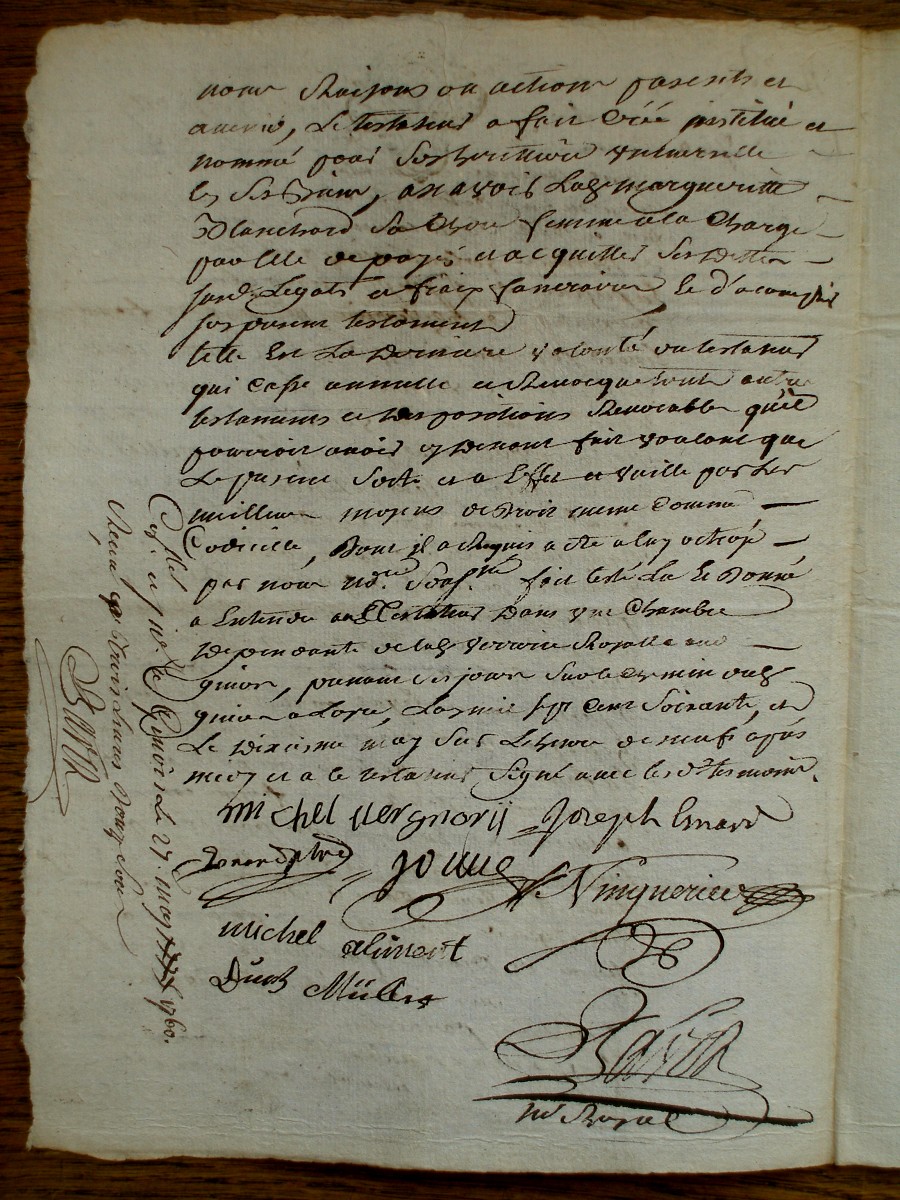 noms Raisons ou actions presents et
avenir, Le testateur a fait Créé institué et
nommé pour Son heritiere universelle
les Ses Biens, a Sçavoir Lad. margueritte
Blanchard Sa Chere femme a la Charge
par Elle de payer et acquitter Ses dettes
susd. Legats et fraix funeraires Et d'acomplir
son present testament
telle Est La Derniere volonté du testateur
qui Casse annulle et Revocque tout autre
testaments et dispositions Revocables qu'il
pourroit avoir cy devant fait voulant que
Le present Sorte son Effet et vaille par les
meilleurs moyens de Droit meme Comme
Codicille, Dont jl a Requis acte a luy octroyé
par nous nd.re Sousné fait leu La Et Donné
a Entendre au Testateur Dans une Chambre
Dependante de lad. verrerie Royalle aud
givors, prenant ses jours Sur le chemin dud.
givors a Loyre, L'an mil sept Cent Soixante, et
Le dixieme may Sur Lheure de neuf apés
midy et a le testateur Signé avec les d. tesmoins.
michel vergnorij Joseph Enard
jouve
Vinguerieu
michel aliment
Müller
Bavor
nre Royal
Cллé et jné a Givors Le 27 may 1760.
Receu trois Livres Douze Sous